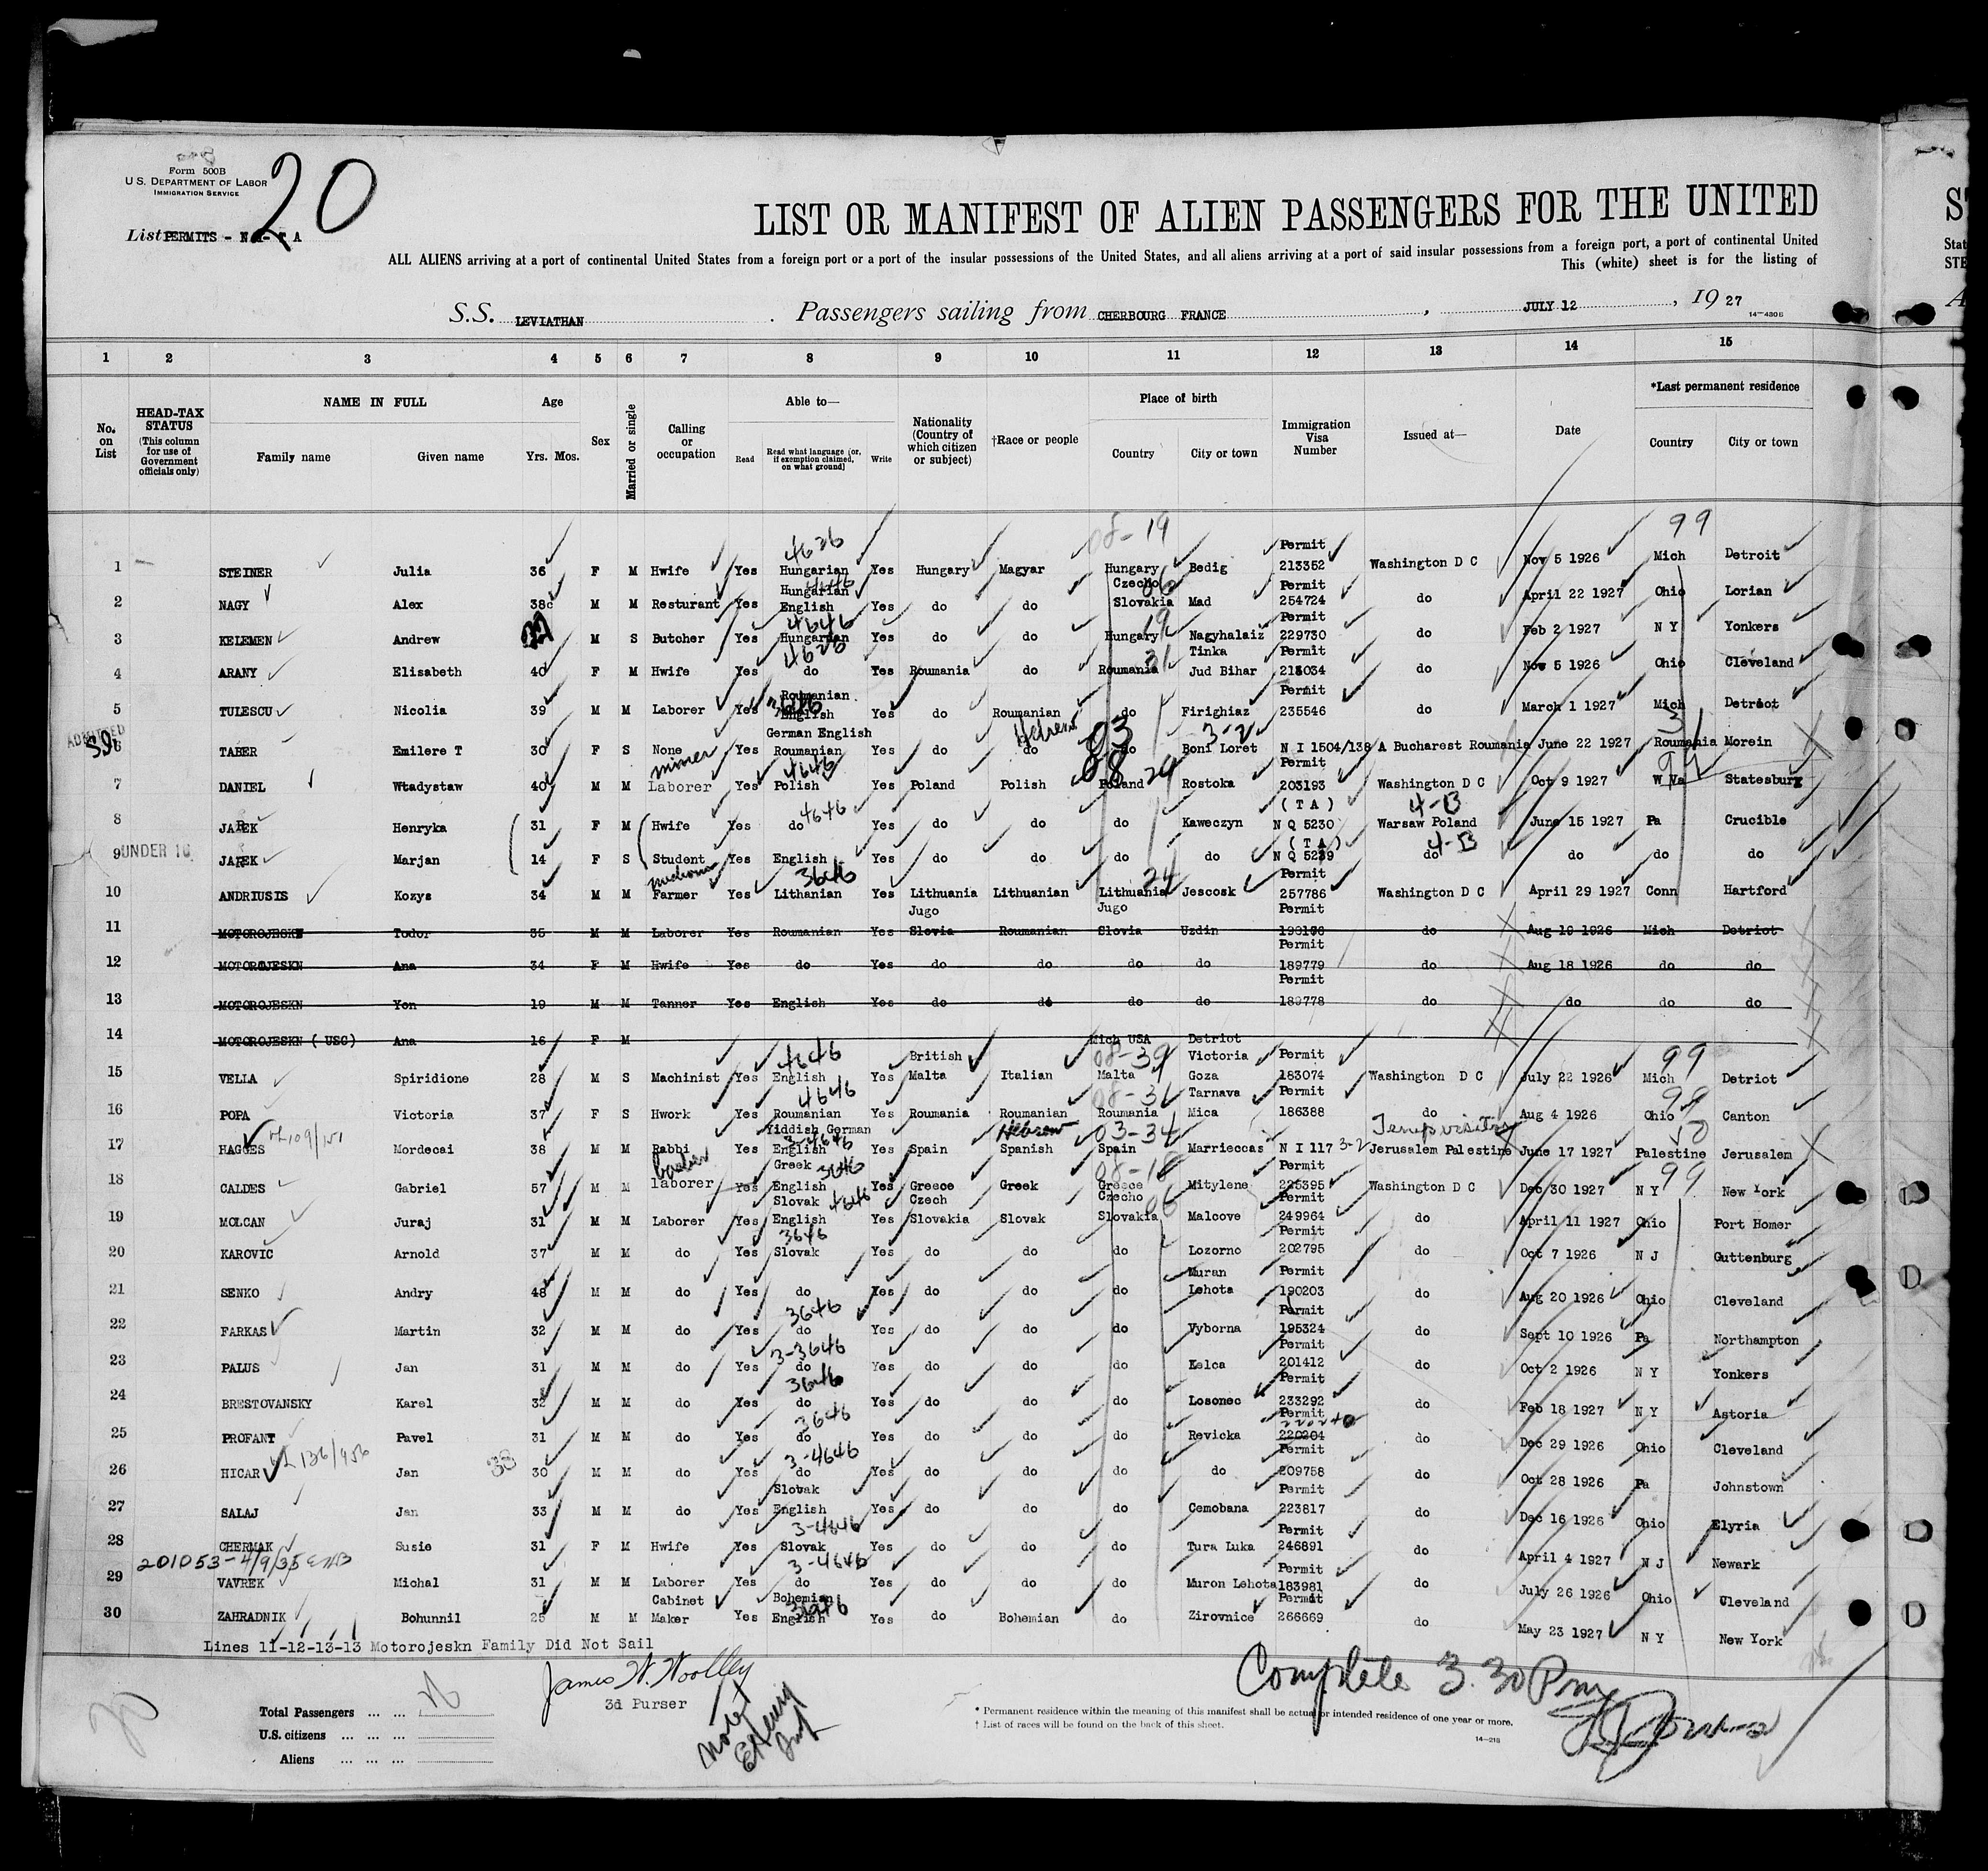 Form 500B
U.S. DEPARTMENT OF LABOR
IMMIGRATION SERVICE
20
List PERMITS - N
LIST OR MANIFEST OF ALIEN PASSENGERS FOR THE UNITED
ALL ALIENS arriving at a port of continental United States from a foreign port or a port of the insular possessions of the United States, and all aliens arriving at a port of said insular possessions from a foreign port, a port of continental United
This (white) sheet is for the listing of
S.S. LEVIATHAN . Passengers sailing from CHERBOURG FRANCE , JULY 12 , 19 27
14—430B
1 2 3 4 5 6 7 8 9 10 11 12 13 14 15
No. on List
HEAD-TAX STATUS (This column for use of Government officials only)
NAME IN FULL Family name Given name
Age Yrs. Mos.
Sex
Married or single
Calling or occupation
Able to— Read Read what language (or, if exemption claimed, on what ground) Write
Nationality (Country of which citizen or subject)
†Race or people
Place of birth Country City or town
Immigration Visa Number
Issued at—
Date
*Last permanent residence Country City or town
08-19 99
1 STEINER Julia 36 F M Hwife Yes Hungarian 4626 Yes Hungary Magyar Hungary Bedig Permit 213352 Washington D C Nov 5 1926 Mich Detroit
2 NAGY Alex 38 M M Resturant Yes Hungarian English 4646 Yes do do Czecho Slovakia 06 Mad Permit 254724 do April 22 1927 Ohio Lorian
3 KELEMEN Andrew M S Butcher Yes Hungarian 4646 Yes do do Hungary 19 Nagyhalaiz Permit 229730 do Feb 2 1927 N Y Yonkers
4 ARANY Elisabeth 40 F M Hwife Yes do 4626 Yes Roumania do Roumania 31 Tinka Jud Bihar Permit 213034 do Nov 5 1926 Ohio Cleveland
5 TULESCU Nicolia 39 M M Laborer Yes Roumanian English Yes do Roumanian do Firighiaz Permit 235546 do March 1 1927 Mich Detriot
ADMITTED
6 TABER Emilere T 30 F S None Yes German English Roumanian Yes do do Hebrew do 03 Boni Loret 3-2 N I 1504/138 A Bucharest Roumania June 22 1927 Roumania 31 Morein
7 DANIEL Wtadystaw 40 M M Laborer miner Yes Polish 4646 Yes Poland Polish Poland 08 24 Rostoka Permit 203193 Washington D C Oct 9 1927 W Va 99 Statesburg
8 JAREK Henryka 31 F M Hwife Yes do 4646 Yes do do do Kaweczyn (TA) N Q 5230 Warsaw Poland 4-B June 15 1927 Pa Crucible
UNDER 16
9 JAREK Marjan 14 F S Student Yes English Yes do do do do (TA) N Q 5239 do 4-B do do do
10 ANDRIUSIS Kozys 34 M M Farmer Yes Lithanian 3646 Yes Lithuania Lithuanian Lithuania 24 Jescosk Permit 257786 Washington D C April 29 1927 Conn Hartford
11 MOTOROJESKN Todor 35 M M Laborer Yes Roumanian Yes Jugo Slovia Roumanian Jugo Slovia Uzdin Permit do Aug 19 1926 Mich Detriot
12 MOTOROJESKN Ana 34 F M Hwife Yes do Yes do do do do Permit 189779 do Aug 18 1926 do do
13 MOTOROJESKN Yon 19 M M Tanner Yes English Yes do do do do Permit 189778 do do do do
14 MOTOROJESKN ( USC) Ana 16 F M Mich USA Detriot
15 VELLA Spiridione 28 M S Machinist Yes English 4646 Yes British Malta Italian Malta 08-39 Victoria Goza Permit 183074 Washington D C July 22 1926 Mich 99 Detriot
16 POPA Victoria 37 F S Hwork Yes Roumanian 4646 Yes Roumania Roumanian Roumania 08-31 Tarnava Mica Permit 186388 do Aug 4 1926 Ohio 99 Canton
17 HAGGES Mordecai 38 M M Rabbi Yes Yiddish German English 3-4646 Yes Spain Spanish Hebrew Spain 03-34 Marrieccas N I 117 3-2 Jerusalem Palestine Temp visitor June 17 1927 Palestine 50 Jerusalem
18 CALDES Gabriel 57 M M laborer Yes Greek English 3646 Yes Greece Greek Greece 08-18 Mitylene Permit 226395 Washington D C Dec 30 1927 N Y 99 New York
19 MOLCAN Juraj 31 M M Laborer Yes Slovak English 4646 Yes Czech Slovakia Slovak Czecho Slovakia 06 Malcove Permit 249964 do April 11 1927 Ohio Port Homer
20 KAROVIC Arnold 37 M M do Yes Slovak 3646 Yes do do do Lozorno Permit 202795 do Oct 7 1926 N J Guttenburg
21 SENKO Andry 48 M M do Yes do Yes do do do Muran Lehota Permit 190203 do Aug 20 1926 Ohio Cleveland
22 FARKAS Martin 32 M M do Yes do 3646 Yes do do do Vyborna Permit 195324 do Sept 10 1926 Pa Northampton
23 PALUS Jan 31 M M do Yes do 3-3646 Yes do do do Kelca Permit 201412 do Oct 2 1926 N Y Yonkers
24 BRESTOVANSKY Karel 32 M M do Yes do 3646 Yes do do do Losonec Permit 233292 do Feb 18 1927 N Y Astoria
25 PROFANT Pavel 31 M M do Yes do 3646 Yes do do do Revicka Permit 220204 do Dec 29 1926 Ohio Cleveland
26 HICAR Jan 30 M M do Yes do 3-4646 Yes do do do do Permit 209758 do Oct 28 1926 Pa Johnstown
27 SALAJ Jan 33 M M do Yes Slovak English Yes do do do Cemobana Permit 223817 do Dec 16 1926 Ohio Elyria
28 CHERMAK Susie 31 F M Hwife Yes Slovak 3-4646 Yes do do do Tura Luka Permit 246891 do April 4 1927 N J Newark
201053-4/9/35
29 VAVREK Michal 31 M M Laborer Yes do 3-4646 Yes do do do Muron Lehota Permit 183981 do July 26 1926 Ohio Cleveland
30 ZAHRADNIK Bohunnil 25 M M Cabinet Maker Yes Bohemian English Yes do Bohemian do Zirovnice Permit 266669 do May 23 1927 N Y New York
Lines 11-12-13-13 Motorojeskn Family Did Not Sail
James W. Woolley
3d Purser
Complete 3.30 Pm
Total Passengers
U.S. citizens
Aliens
* Permanent residence within the meaning of this manifest shall be actual or intended residence of one year or more.
† List of races will be found on the back of this sheet.
14—218